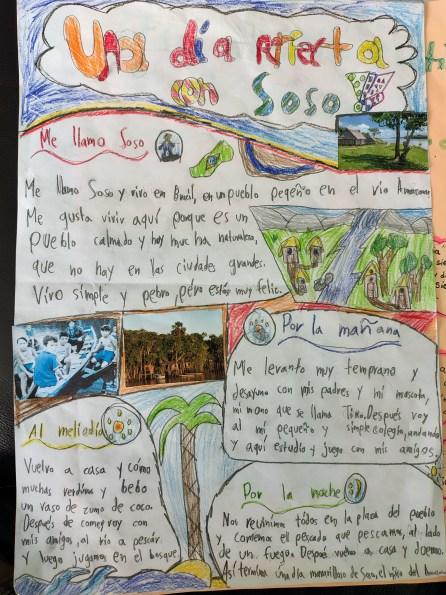 Una día perfecta
con Soso
Me llamo Soso
Me llamo Soso y vivo en Brasil, en un pueblo pegeño en el río Amazonas
Me gusta vivir aquí porque es un
pueblo calmado y hay mucha naturaleza,
que no hay en las ciudades grandes.
Vivo simple y pebro, pero estoy muy feliz.
Por la mañana
Me levanto muy temprano y
desayuno con mis padres y mi mascota,
mi mono que se llama Tiko. Después voy
al mi pequeño y simple colegio, andando
y aqui estudio y juego con mis amigos.
Al meliodía
Vuelvo a casa y como
muchas verduras y bebo
un vaso de zumo de coco.
Después de comer voy con
mis amigos, al río a pescár
y luego jugamos en el bosque.
Por la noche
Nos reunimos todos en la plaza del pueblo
y, comemos el pescado que pescamos, al lado
de un fuego. Después vuelvo a casa y duermo.
Así termina una día maravilloso de Soso, el niño del